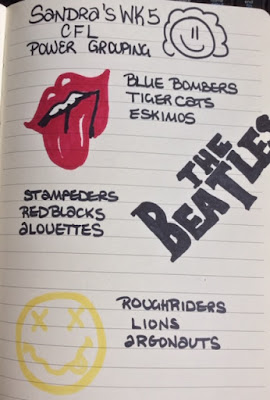 SANDRA'S WK 5
CFL
POWER GROUPING
BLUE BOMBERS
TIGER CATS
ESKIMOS
THE
BEATLES
STAMPEDERS
REDBLACKS
ALOUETTES
ROUGHRIDERS
LIONS
ARGONAUTS